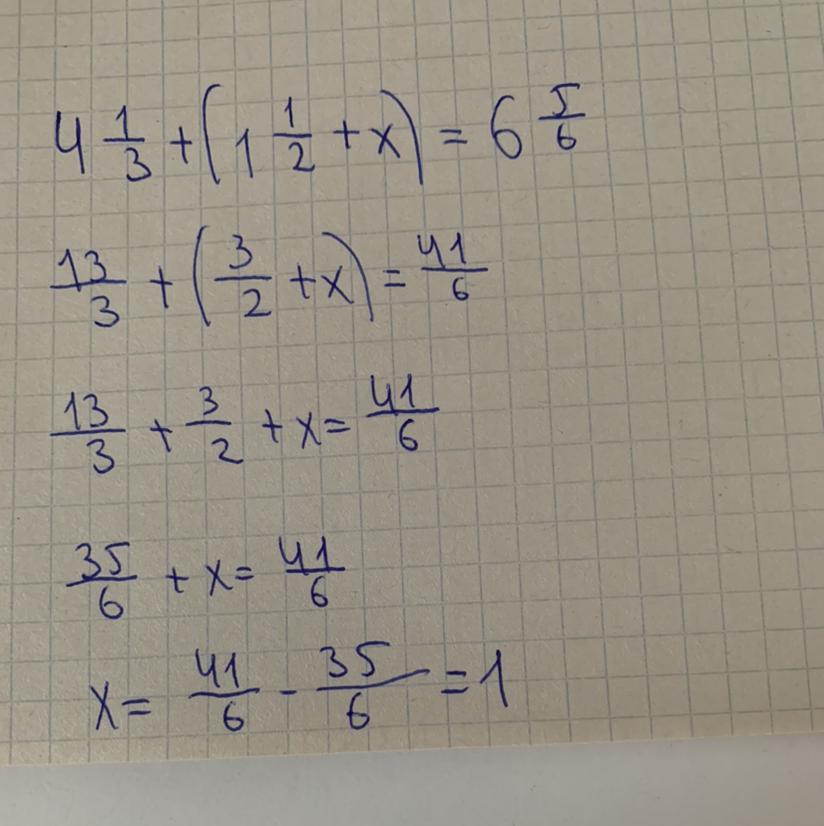 4 1/3 + (1 1/2 + x) = 6 5/6
13/3 + (3/2 + x) = 41/6
13/3 + 3/2 + x = 41/6
35/6 + x = 41/6
x = 41/6 - 35/6 = 1